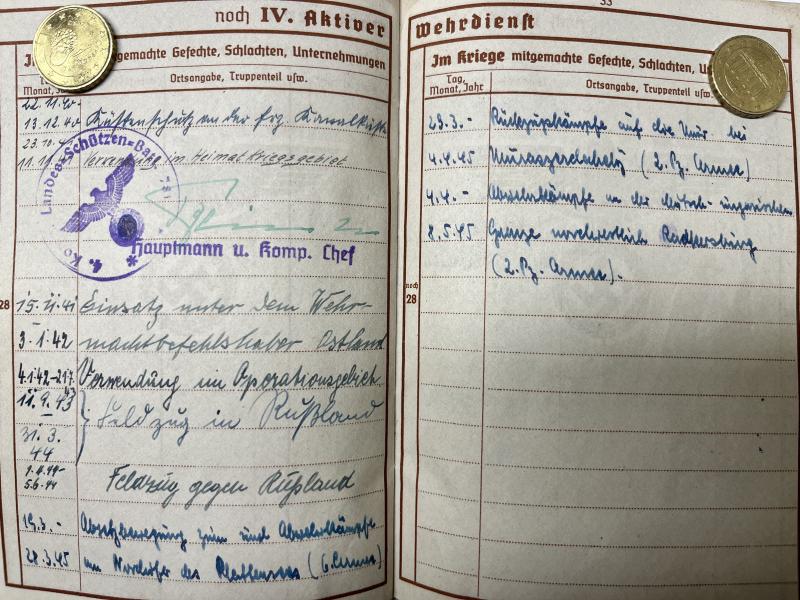 noch IV. Aktiver
Im Kriege mitgemachte Gefechte, Schlachten, Unternehmungen
Tag, Monat, Jahr
Ortsangabe, Truppenteil usw.
22.11.40-
13.12.40 Küstenschutz an der frz. Kanalküste
23.10.4
11.11. Verwendung im Heimatkriegsgebiet
Landesschützen=Bat
4. Ko
Hauptmann u. Komp. Chef
28
15.11.41 Einsatz unter dem Wehr-
3.1.42 machtbefehlshaber Ostland
4.1.42-21.7. Verwendung im Operationsgebiet
11.9.43
Feldzug in Rußland
31.3.
44
5.6.44 Feldzug gegen Rußland
19.3.- Absetzbewegung zum und Abwehrkämpfe
28.3.45 am Nordufer des Plattensees (6. Armee)
33
Wehrdienst
Im Kriege mitgemachte Gefechte, Schlachten, U
Tag, Monat, Jahr
Ortsangabe, Truppenteil usw.
29.3.- Rückzugskämpfe auf die Mur bei
4.4.45 Muraszerdahely (2. Pz. Armee)
4.4.- Abwehrkämpfe an der deutsch-ungarischen
8.5.45 Grenze nordwestlich Radkersburg
(2. Pz. Armee).
noch
28